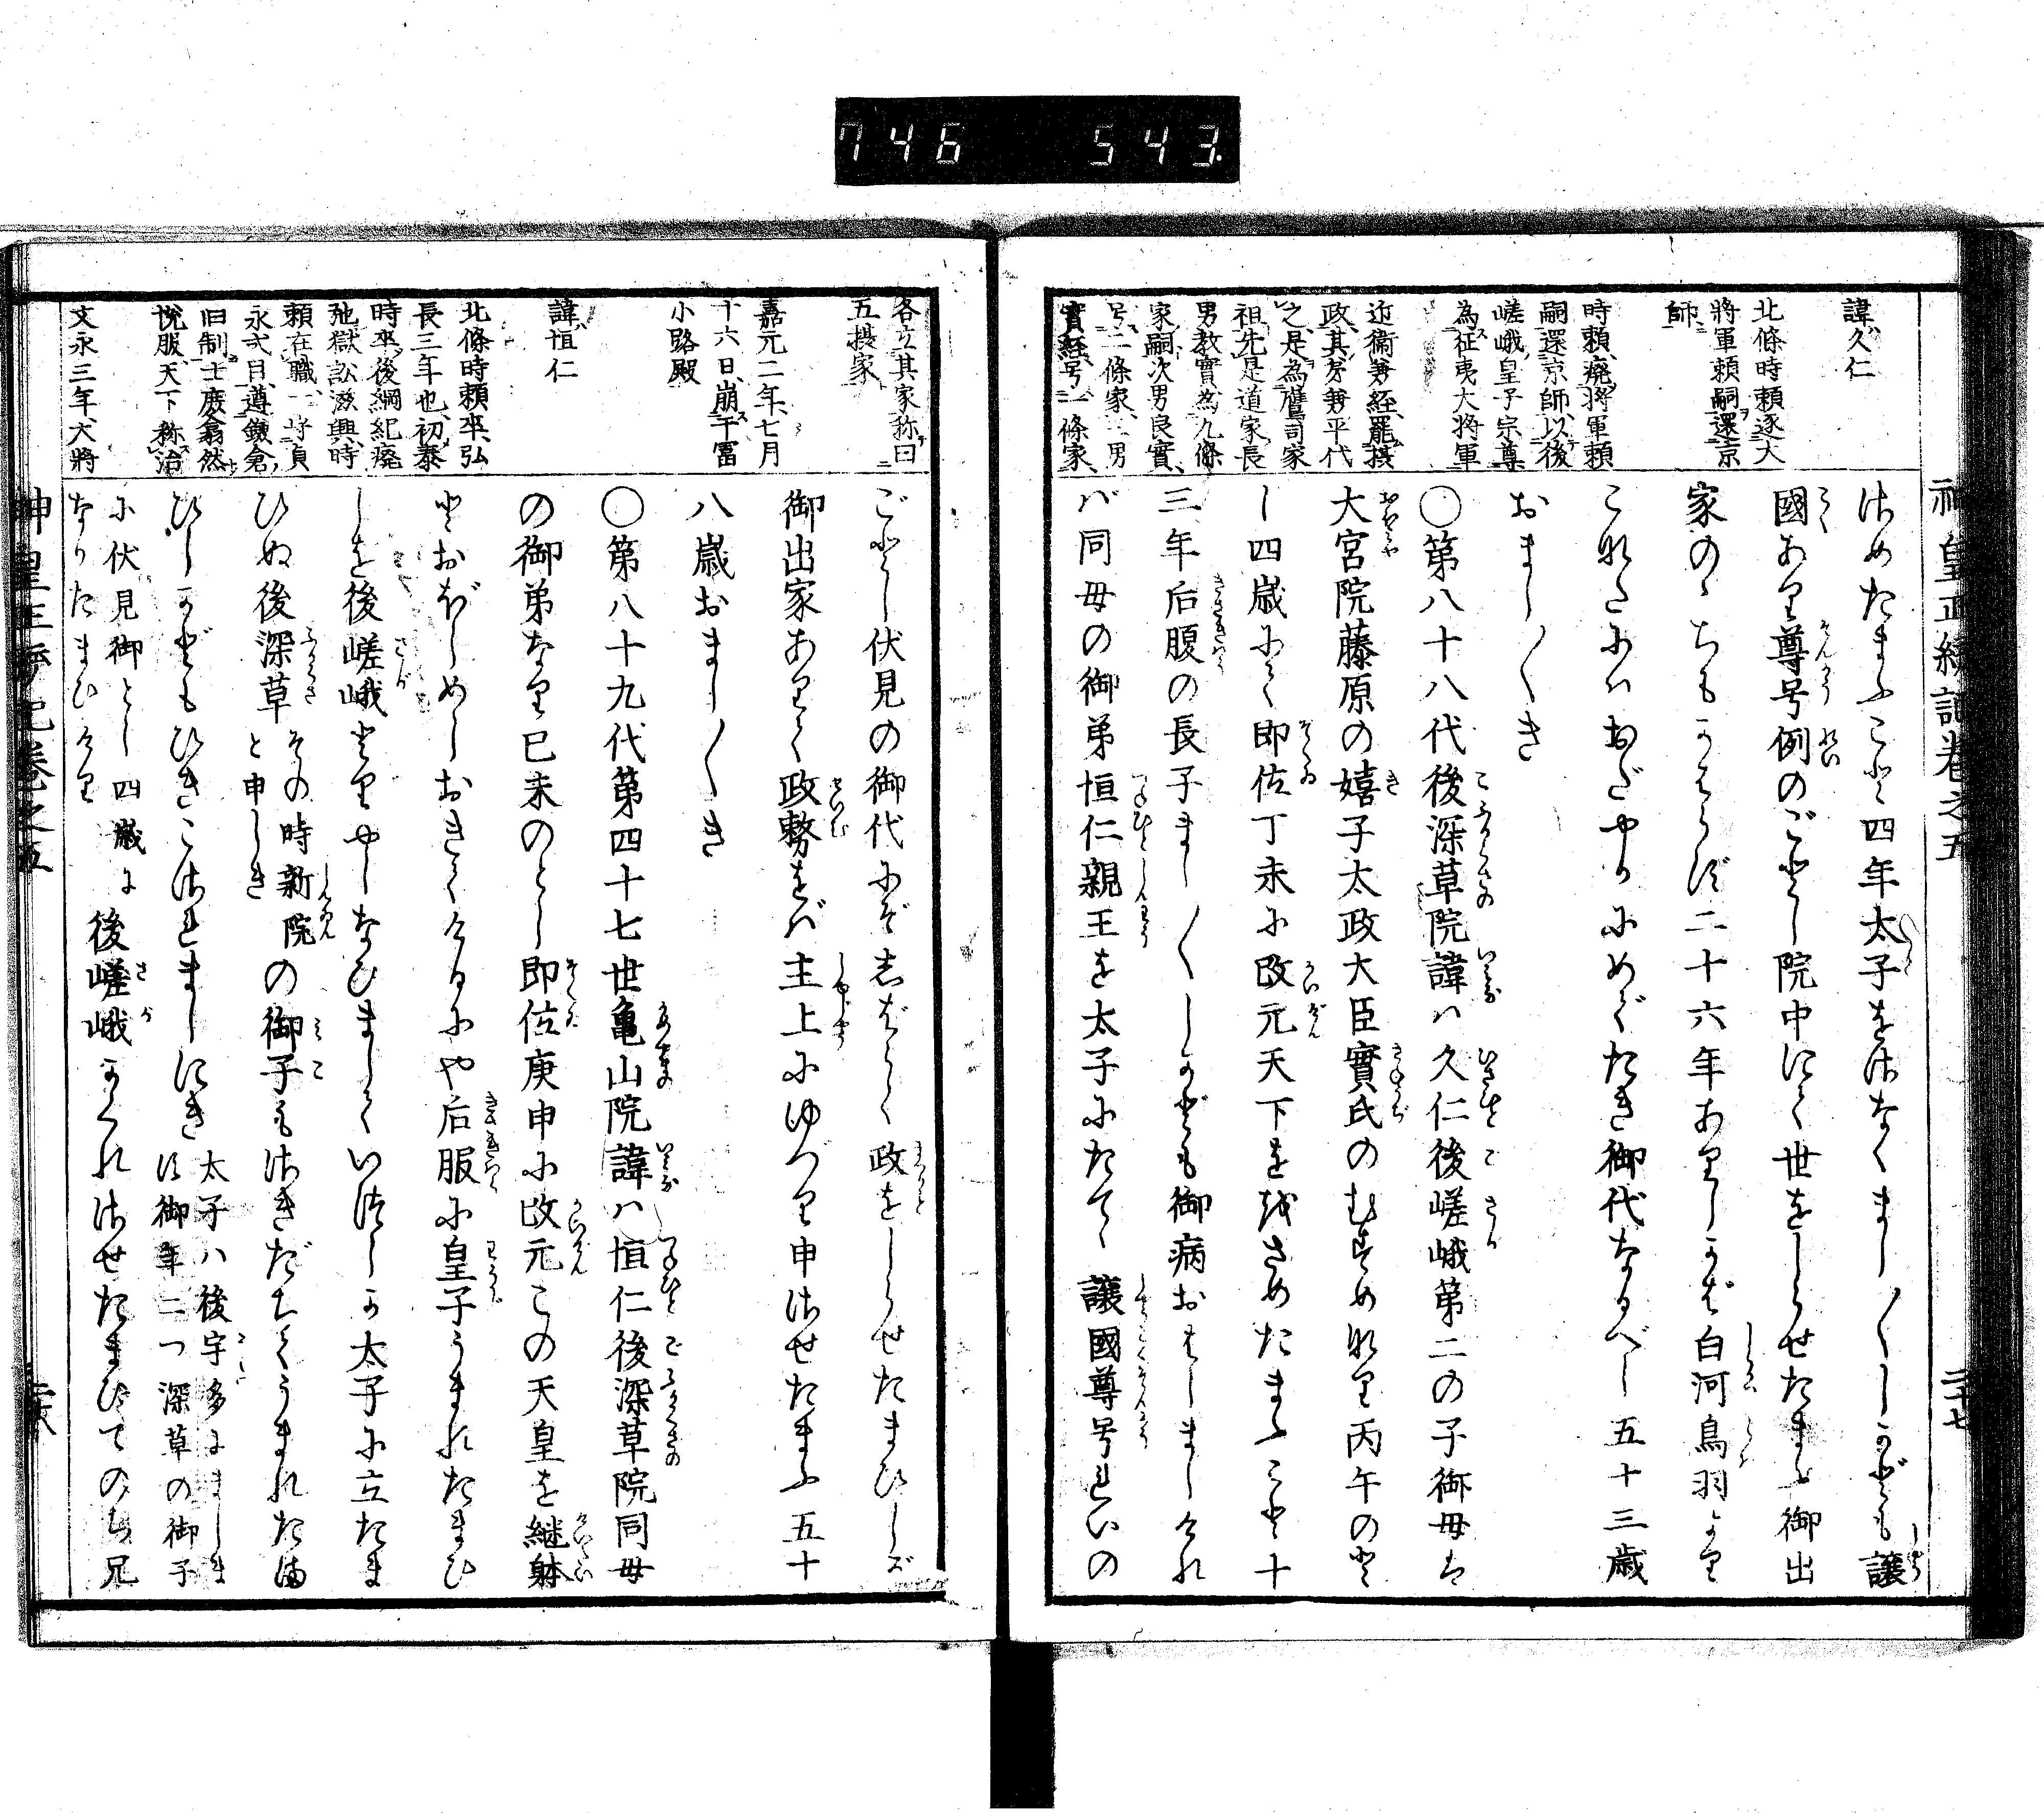 神皇正統記卷之五
二十七
諱久仁
北條時賴逐大
將軍賴嗣還京
師
時賴廢將軍賴
嗣還京師以後
嵯峨皇子宗尊
為征夷大將軍
近衞兼經罷摂
政其弟兼平代
之是為鷹司家
祖先是道家長
男教實為九條
家嗣次男良實
号二條家三男
實経号一條家
さめたまふこと四年太子をさなくまし〱しかども讓
國あり尊号例のごとし院中にて世をしらせたまふ御出
家のゝちもかはらず二十六年ありしかば白河鳥羽より
こなたにハおだやかにめでたき御代なるべし五十三歳
おまし〱き
〇第八十八代後深草院諱ハ久仁後嵯峨第二の子御母は
大宮院藤原の嬉子太政大臣實氏のむすめなり丙午のと
し四歳にて即位丁未に改元天下ををさめたまふこと十
三年后腹の長子まし〱しかども御病おはしましけれ
バ同母の御弟恒仁親王を太子にたてゝ讓國尊号れいの
各立其家称曰
五摂家
嘉元二年七月
十六日崩于冨
小路殿
諱恒仁
北條時賴卒弘
長三年也初泰
時卒後綱紀廢
弛獄訟滋興時
賴在職一守貞
永式目遵鎌倉
旧制士庶翕然
悅服天下称治
文永三年大將
ごとし伏見の御代にぞしばらく政をしらせたまひしが
御出家ありて政務をバ主上にゆづり申させたまふ五十
八歳おまし〱き
〇第八十九代第四十七世亀山院諱ハ恒仁後深草院同母
の御弟なり巳未のとし即位庚申に改元この天皇を継躰
とおぼしめしおきてけるにや后服に皇子うまれたまひ
しを後嵯峨とりやしなひましていつしか太子に立たま
ひぬ後深草その時新院と申しきの御子もさきだちてうまれたま
ひしかどもひきこされましにき太子ハ後宇多にましま
す御年二つ深草の御子
に伏見御とし四歳に
なりたまひける後嵯峨かくれさせたまひてのち兄
神皇正統記卷之五
二十八